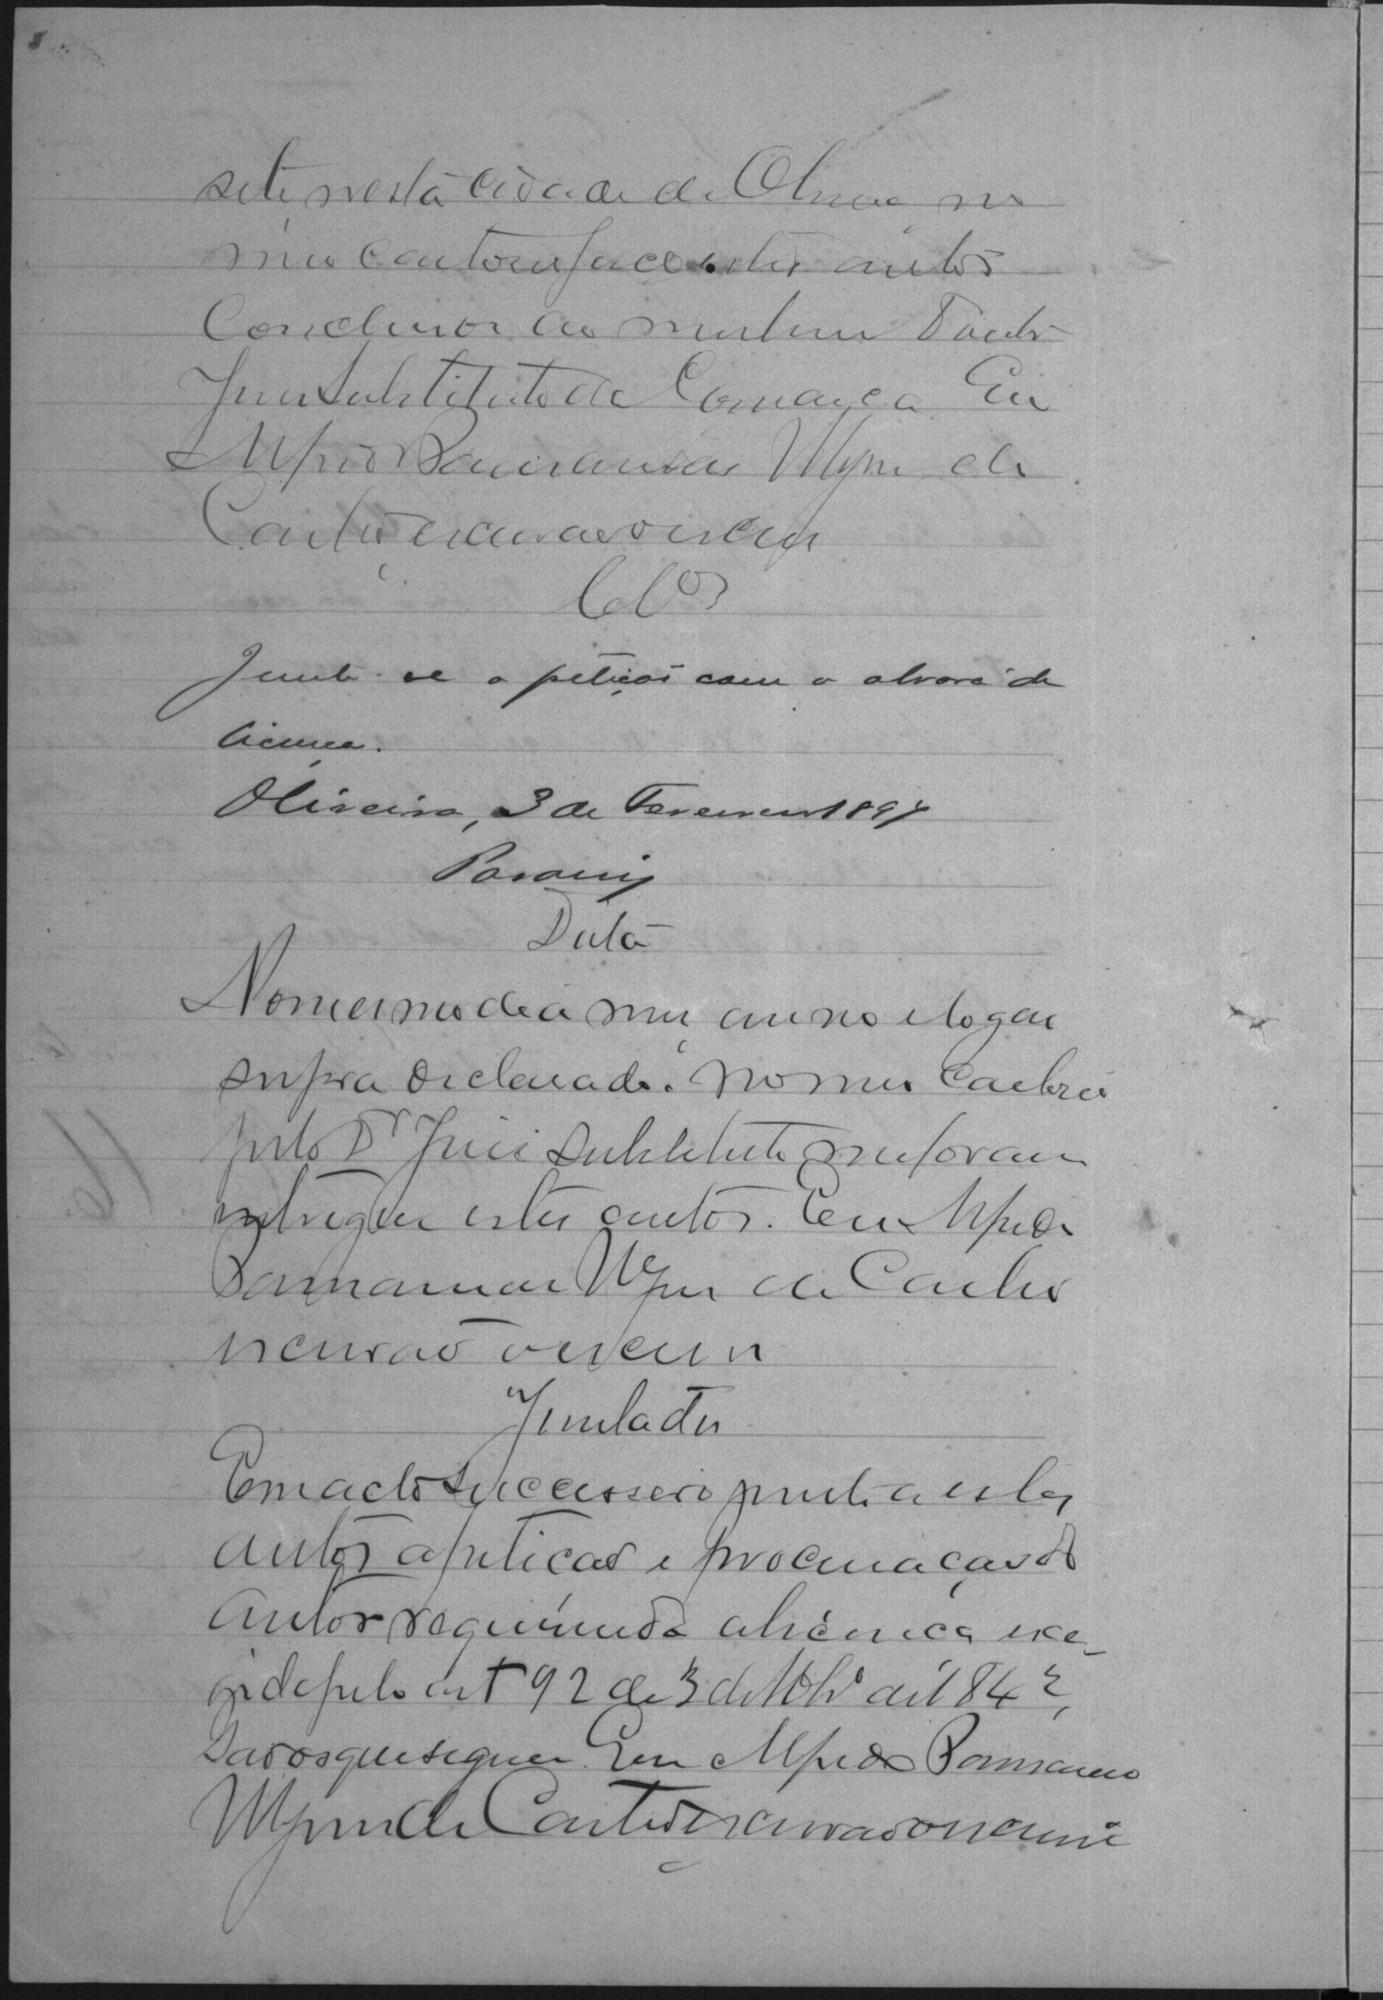 sete nesta cidade de Olivra no
meu cartorio faço estes autos
Conclusos ao meritissimo Doutor
Juis Substituto da Comarca Eu
Alfredo
Castro escrivão o escrevi
Clos
Junte-se a petição com o alvará de
licença.
Oliveira, 3 de Fevereiro 1897
Data
No mesmo dia mez anno e logar
supra declarado. no meu Cartorio
pelo Dr Juis Substituto me foram
entregue estes autos. Eu Alfredo
de Castro
escrivão o escrevi
Juntada
Em acto successivo junto a estes
autos a petição e procuração do
Autor requerendo a licença exe-
pelo art 92 de 3 de 1842,
que segue. Eu Alfredo
de Castro escrivão o escrevi